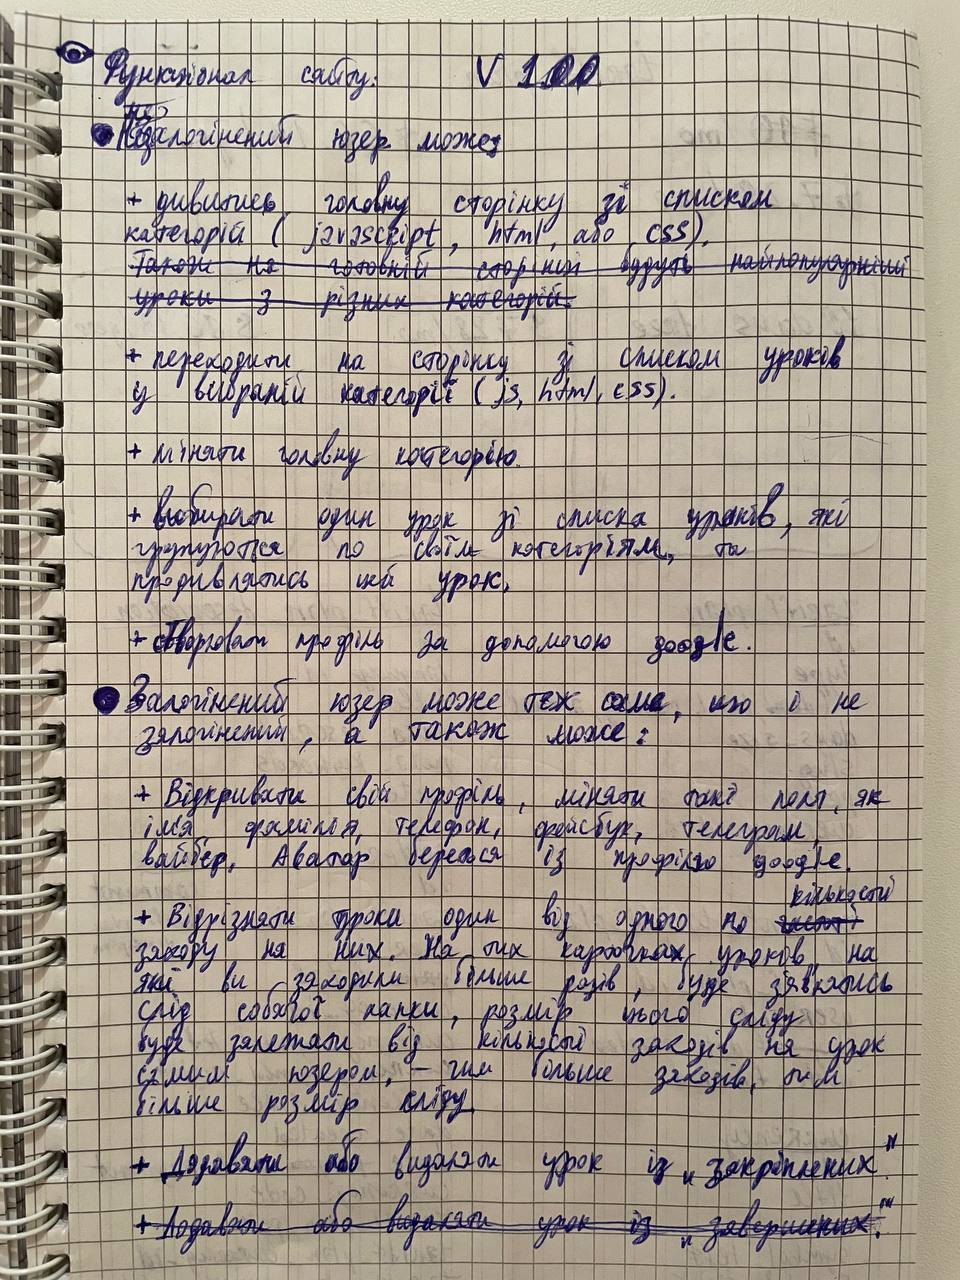 Функціонал сайту: V 1.0.0
Незалогінений юзер може:
+ дивитись головну сторінку зі списком
категорій ( javascript, html, або css).
Також на головній сторінці будуть найпопулярніші
уроки з різних категорій.
+ переходити на сторінку зі списком уроків
у вибраній категорії ( js, html, css).
+ міняти головну категорію.
+ вибирати один урок зі списка уроків, які
групуються по своїм категоріям, та
продивлятись цей урок.
+ створювати профіль за допомогою google.
Залогінений юзер може теж саме, що і не
залогінений, а також може:
+ Відкривати свій профіль, міняти такі поля, як
ім'я фамілія, телефон, фейсбук, телеграм
вайбер, Аватар береться із профілю google.
+ Відрізняти уроки один від одного по кількості
заходу на них. На тих карточках уроків, на
які ви заходили більше разів, буде з'являтись
слід собачої лапки, розмір цього сліду
буде залежати від кількості заходів на урок
самим юзером, – чим більше заходів, тим
більше розмір сліду.
+ Додавати або видаляти урок із „ закріплених "
+ Додавати або видаляти урок із „ завершених. "